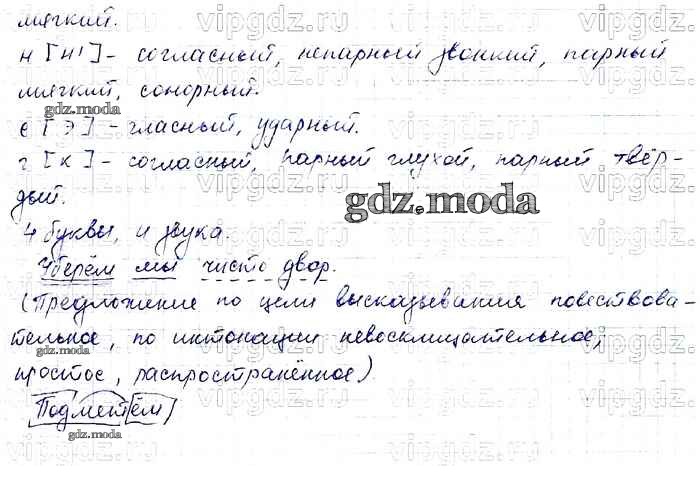 мягкий.
н [н'] - согласный, непарный звонкий, парный
мягкий, сонорный.
е [э] - гласный, ударный.
г [к] - согласный, парный глухой, парный твёр-
дый.
4 буквы, 4 звука.
Уберём мы чисто двор.
(Предложение по цели высказывания повествова-
тельное, по интонации невосклицательное,
простое, распространённое)
Подметём)
gdz.moda
gdz.moda
gdz.moda
gdz.moda
vipgdz.ru